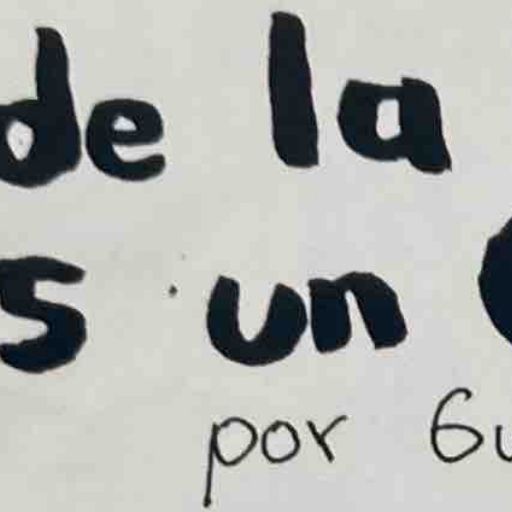 de la
s un
por Gu